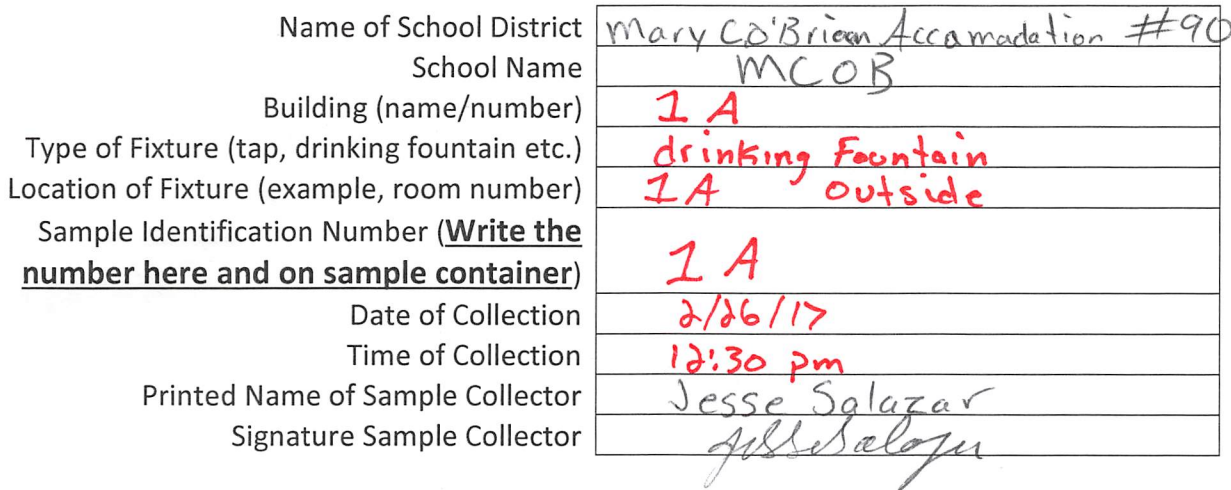 Name of School District Mary CO'Brien Accamadation #90
School Name MCOB
Building (name/number) 1 A
Type of Fixture (tap, drinking fountain etc.) drinking Fountain
Location of Fixture (example, room number) 1A outside
Sample Identification Number (Write the
number here and on sample container) 1 A
Date of Collection 2/26/17
Time of Collection 12:30 pm
Printed Name of Sample Collector Jesse Salazar
Signature Sample Collector Jesse Salazar